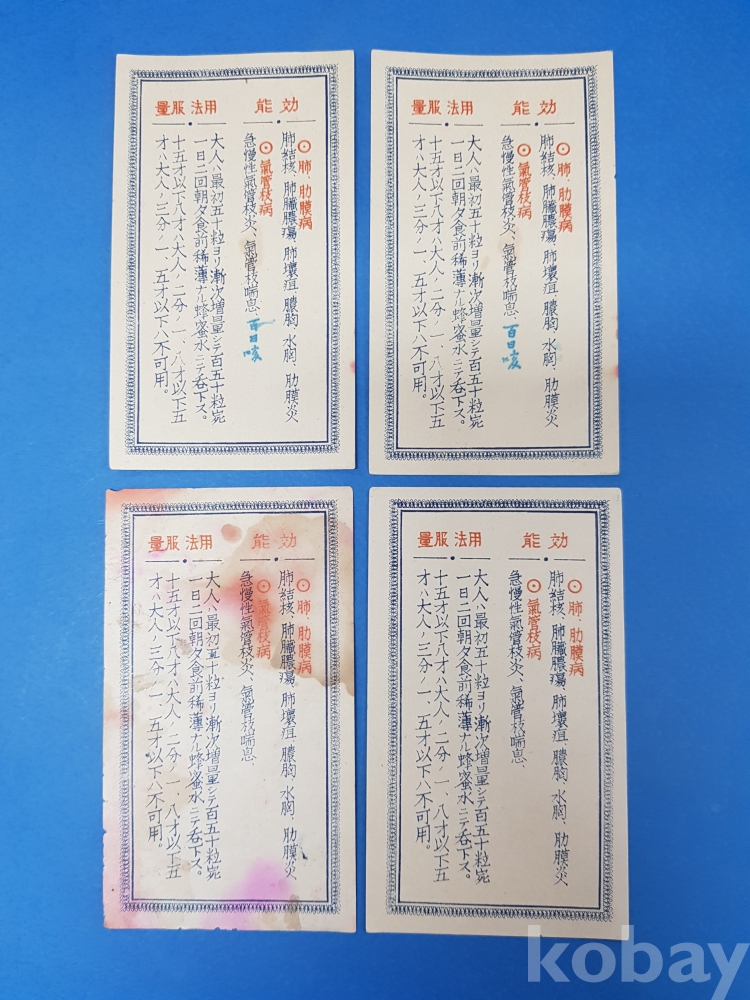 効能
⊙肺、肋膜病
肺結核、肺臟膿瘍、肺壞疽、膿胸、水胸、肋膜炎
⊙氣管枝病
急慢性氣管枝炎、氣管枝喘息、百日咳
用法服量
大人ハ最初五十粒ヨリ漸次増量シテ百五十粒宛
一日二回朝夕食前稀薄ナル蜂蜜水ニテ呑下ス。
十五才以下八才ハ大人ノ二分ノ一、八才以下五
才ハ大人ノ三分ノ一、五才以下ハ不可用。
効能
⊙肺、肋膜病
肺結核、肺臟膿瘍、肺壞疽、膿胸、水胸、肋膜炎
⊙氣管枝病
急慢性氣管枝炎、氣管枝喘息、百日咳
用法服量
大人ハ最初五十粒ヨリ漸次増量シテ百五十粒宛
一日二回朝夕食前稀薄ナル蜂蜜水ニテ呑下ス。
十五才以下八才ハ大人ノ二分ノ一、八才以下五
才ハ大人ノ三分ノ一、五才以下ハ不可用。
効能
⊙肺、肋膜病
肺結核、肺臟膿瘍、肺壞疽、膿胸、水胸、肋膜炎
⊙氣管枝病
急慢性氣管枝炎、氣管枝喘息、
用法服量
大人ハ最初五十粒ヨリ漸次増量シテ百五十粒宛
一日二回朝夕食前稀薄ナル蜂蜜水ニテ呑下ス。
十五才以下八才ハ大人ノ二分ノ一、八才以下五
才ハ大人ノ三分ノ一、五才以下ハ不可用。
効能
⊙肺、肋膜病
肺結核、肺臟膿瘍、肺壞疽、膿胸、水胸、肋膜炎
⊙氣管枝病
急慢性氣管枝炎、氣管枝喘息、
用法服量
大人ハ最初五十粒ヨリ漸次増量シテ百五十粒宛
一日二回朝夕食前稀薄ナル蜂蜜水ニテ呑下ス。
十五才以下八才ハ大人ノ二分ノ一、八才以下五
才ハ大人ノ三分ノ一、五才以下ハ不可用。
kobay